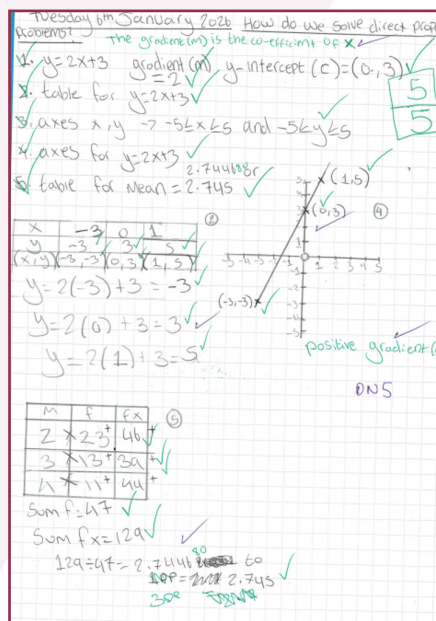 Tuesday 6th January 2026 How do we solve direct prop
problems?
The gradient (m) is the co-efficient of x
1. y=2x+3 gradient (m) y-intercept (c)=(0,3)
=2
2. table for y=2x+3
5
5
3. axes x,y → -5≤x≤5 and -5≤y≤5
4. axes for y=2x+3
5. table for mean = 2.745
②
x -3 0 1
y -3 3 5
(x,y) (-3,-3) (0,3) (1,5)
y=2(-3)+3=-3
y=2(0)+3=3
y=2(1)+3=5
④
(1,5)
(0,3)
(-3,-3)
positive gradient
DN5
⑤
M f fx
2 × 23 + 46 +
3 × 13 + 39 +
4 × 11 + 44 +
Sum f=47
Sum fx=129
129÷47=2.7446 80 to
= 2.745
3DP